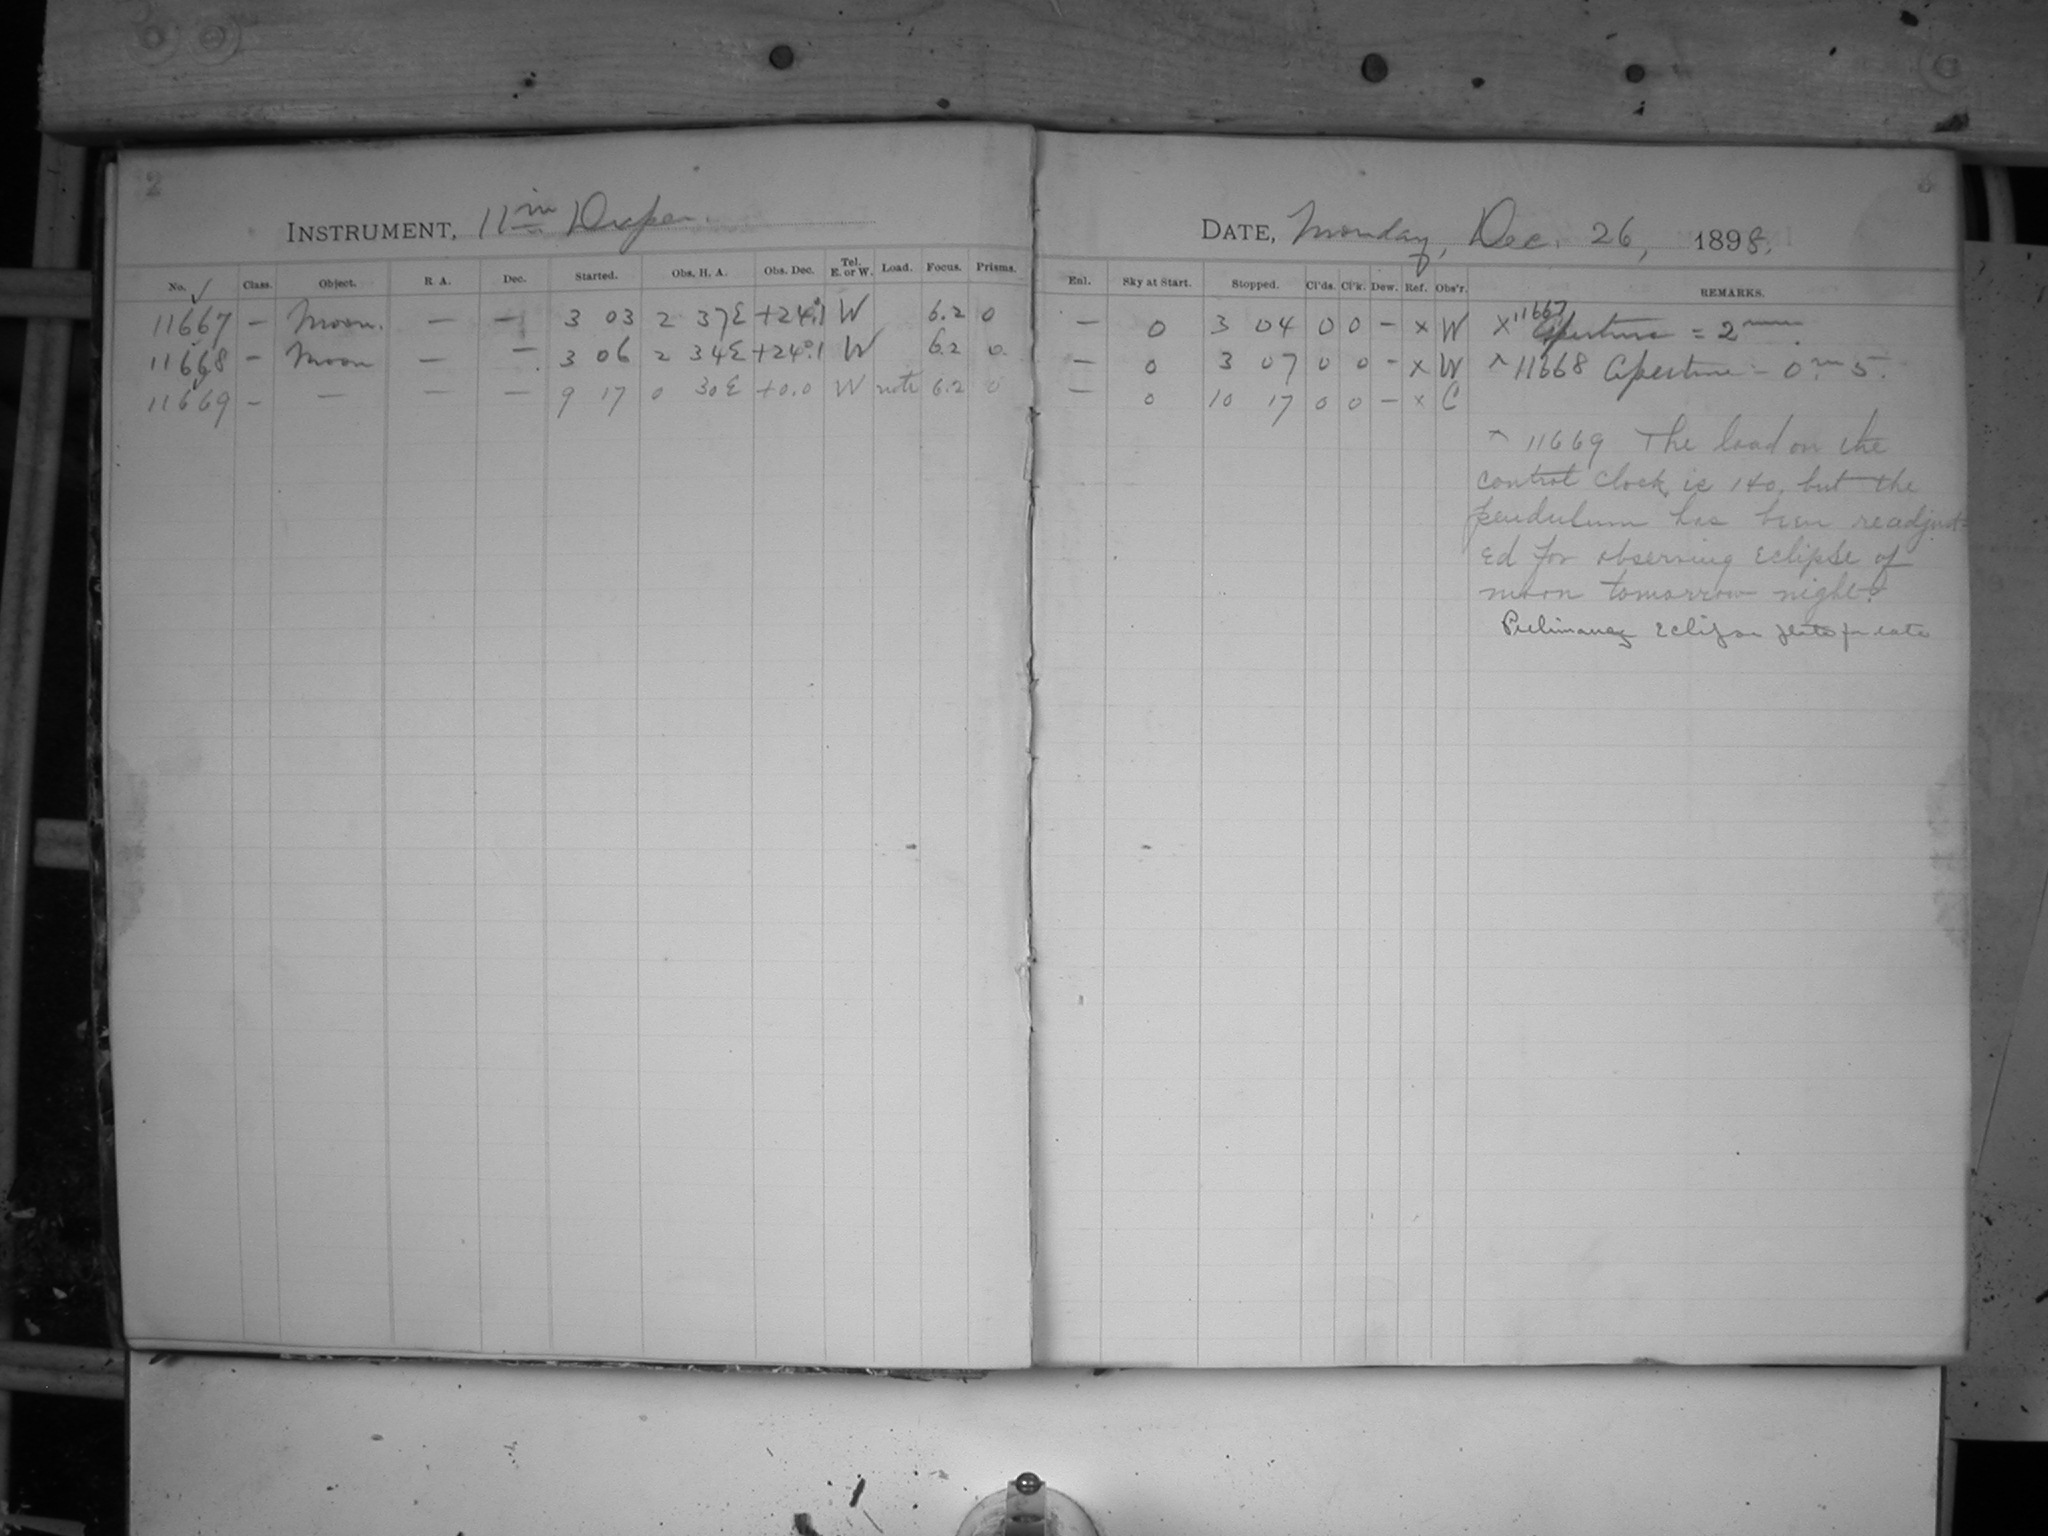 2
INSTRUMENT, 11in Draper.
No. Class. Object. R A. Dec. Started. Obs. H. A. Obs. Dec. Tel. E. or W. Load. Focus. Prisms.
11667 – Moon. – – 3 03 2 37E +24°.1 W 6.2 0
11668 – Moon – – 3 06 2 34E +24°.1 W 6.2 0.
11669 – – – – 9 17 0 30E +0.0 W note 6.2 0
DATE, Monday, Dec. 26, 1898.
Enl. Sky at Start. Stopped. Cl'ds. Cl'k. Dew. Ref. Obs'r. REMARKS.
– 0 3 04 0 0 – x W x 11667 Aperture = 2
– 0 3 07 0 0 – x W ^ 11668 Aperture = 0.m 5.
– 0 10 17 0 0 – x C
^ 11669 The load on the
control clock is 140, but the
pendulum has been readjust-
ed for observing eclipse of
moon tomorrow night.
Preliminary Eclipse